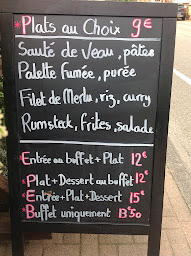 *Plats au Choix 9€
Sauté de Veau, pâtes
Palette Fumée, purée
Filet de Merlu, riz, curry
Rumsteck, frites, salade
*Entrée au buffet + Plat 12€
*Plat + Dessert au buffet 12€
*Entrée + Plat + Dessert 15€
*Buffet uniquement 8€50